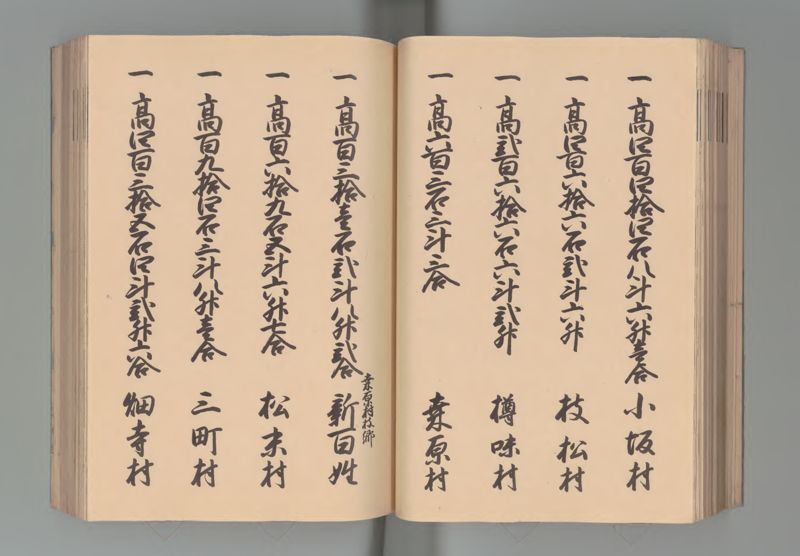 一 高四百四拾四石八斗六升壱合 小坂村
一 高四百六拾六石弐斗六升 枝松村
一 高弐百六拾六石六斗弐升 樽味村
一 高六百三石三斗三合 桒原村
桒原村枝郷
一 高百三拾壱石弐斗八升弐合 新百姓
一 高百六拾九石五斗六升七合 松末村
一 高百九拾四石三斗八升壱合 三町村
一 高四百三拾五石四斗弐升六合 畑寺村